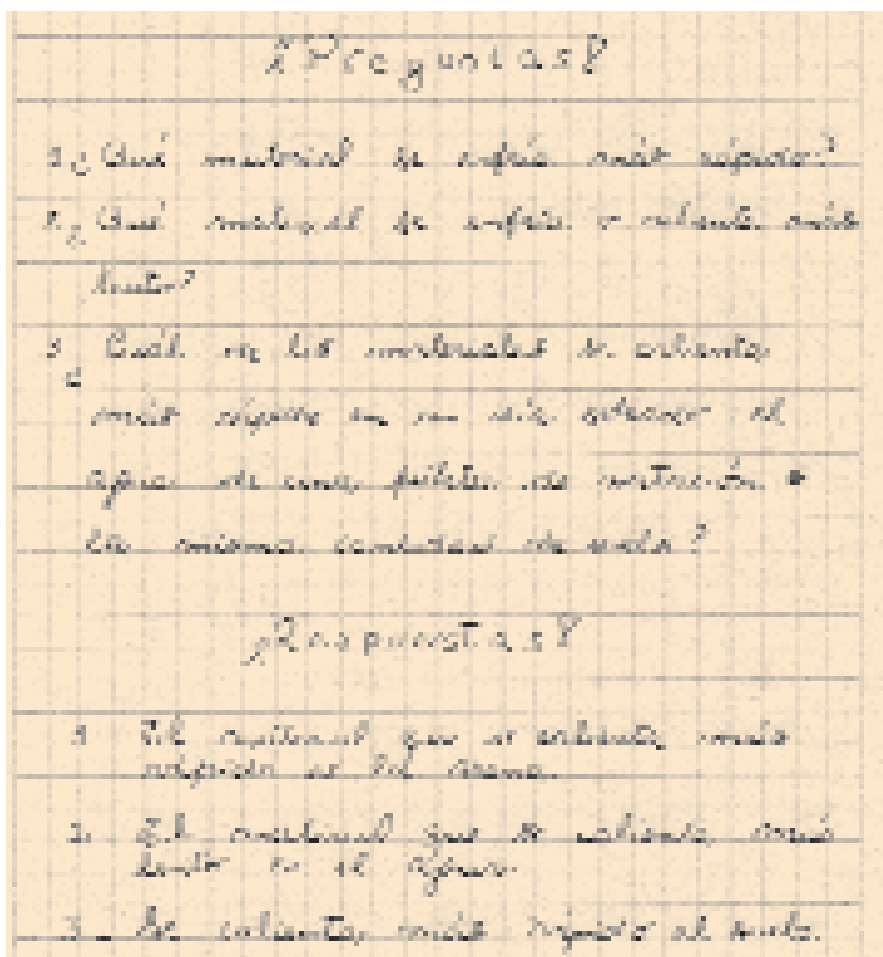 ¿Preguntas?
1. ¿Qué material se enfría más rápido?
2. ¿Qué material se enfría o calienta más
lento?
3. ¿Cuál de los materiales se calienta
más rápido en un día el
agua de una pileta de natación o
la misma cantidad de suelo?
¿Respuestas?
1. El material que se calienta más
rápido es la arena.
2. El material que se calienta más
lento es el agua.
3. Se calienta más rápido el suelo.